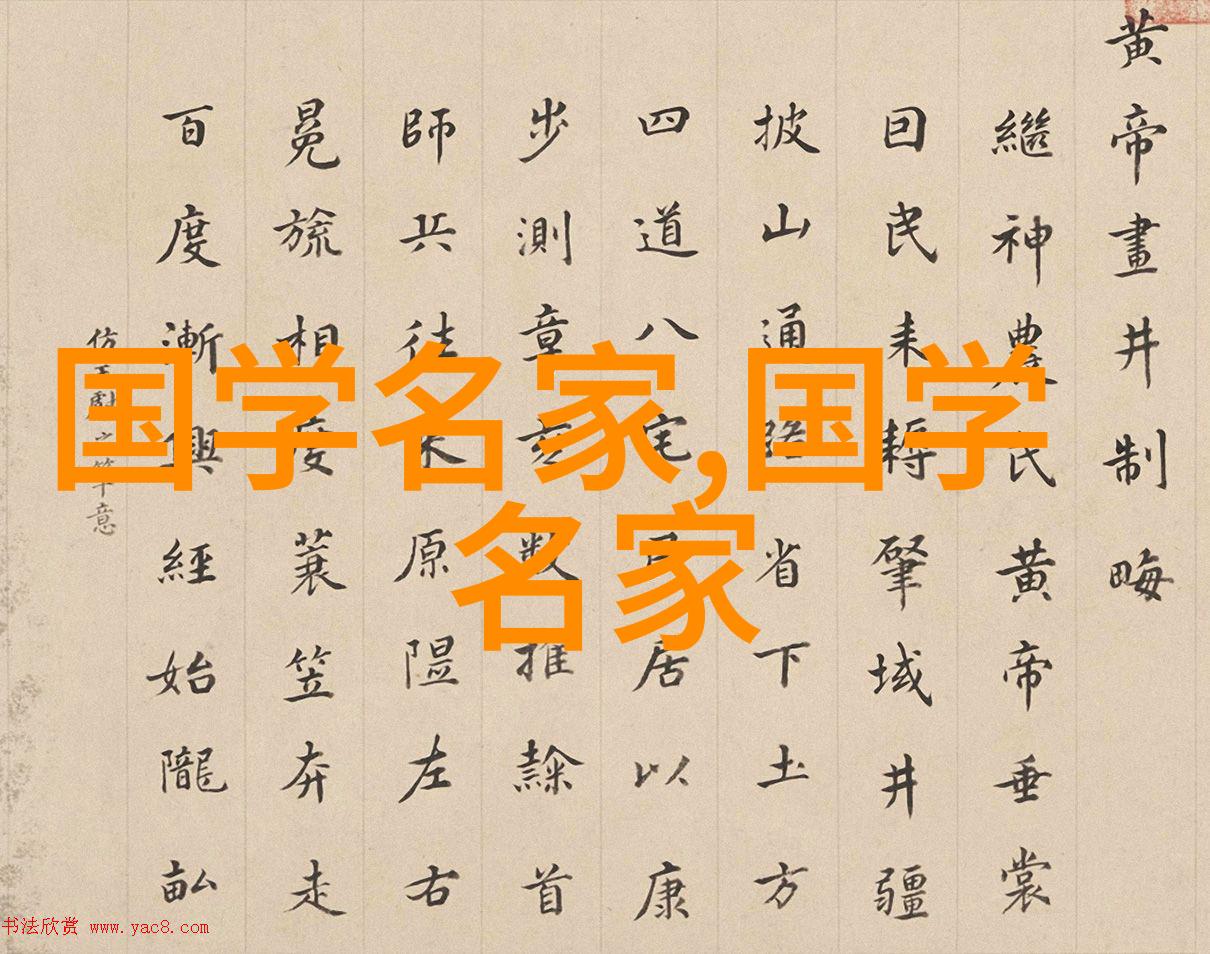 黄帝畫井制畮
繼神農氏黄帝垂裳
囙民耒耨肇域井疆
披山通路省下土方
四道八宅居以康
步測章亥數推隸首
師兵往来原隰左右
冕旒相度蓑笠奔走
百度漸興經始隴畝
仿王獻之筆意
国学名家,国学
名家
书法欣赏 www.yac8.com